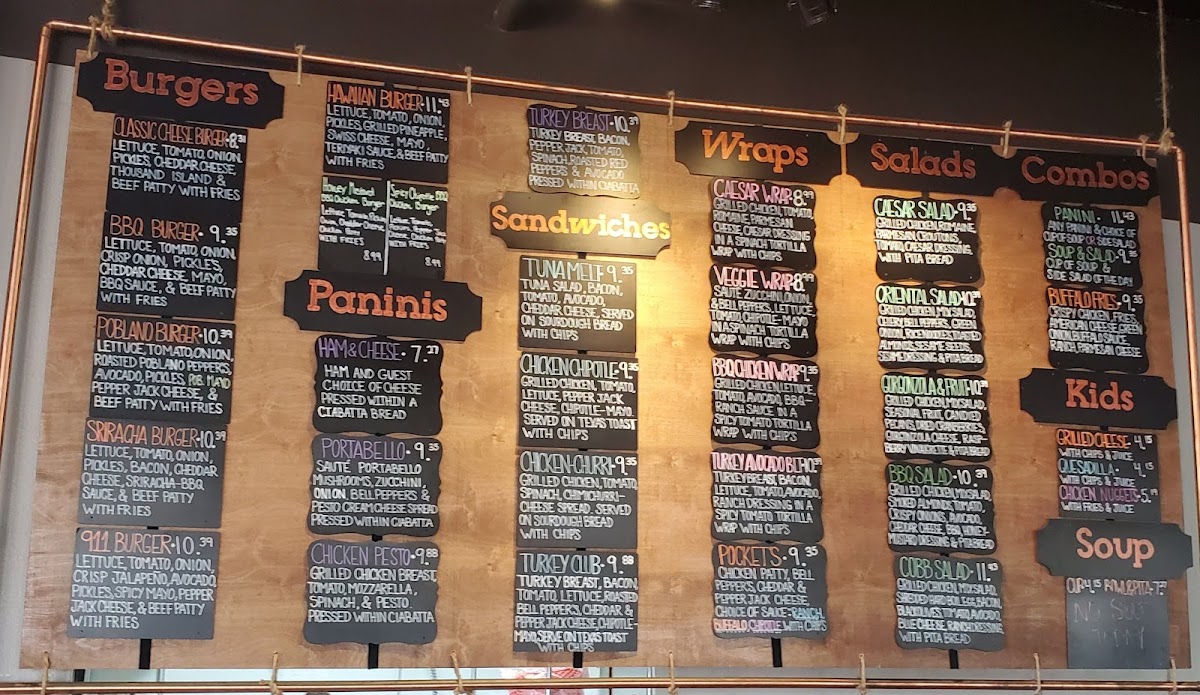 Burgers
CLASSIC CHEESE BURGER • 8.31
LETTUCE, TOMATO, ONION,
PICKLES, CHEDDAR CHEESE,
THOUSAND ISLAND &
BEEF PATTY WITH FRIES
BBQ BURGER • 9.35
LETTUCE, TOMATO, ONION,
CRISP ONION, PICKLES,
CHEDDAR CHEESE, MAYO,
BBQ SAUCE, & BEEF PATTY
WITH FRIES
POBLANO BURGER • 10.39
LETTUCE, TOMATO, ONION,
ROASTED POBLANO PEPPERS,
AVOCADO, PICKLES, POB. MAYO
PEPPER JACK CHEESE, &
BEEF PATTY WITH FRIES
SRIRACHA BURGER • 10.39
LETTUCE, TOMATO, ONION,
PICKLES, BACON, CHEDDAR
CHEESE, SRIRACHA-BBQ
SAUCE, & BEEF PATTY
WITH FRIES
911 BURGER • 10.39
LETTUCE, TOMATO, ONION,
CRISP JALAPEÑO, AVOCADO,
PICKLES, SPICY MAYO, PEPPER
JACK CHEESE, & BEEF PATTY
WITH FRIES
HAWAIIAN BURGER • 11.43
LETTUCE, TOMATO, ONION,
PICKLES, GRILLED PINEAPPLE,
SWISS CHEESE, MAYO,
TERIYAKI SAUCE, & BEEF PATTY
WITH FRIES
Honey Mustard
BBQ Chicken Burger
Lettuce Tomato Pickles
Onion, Cheddar Cheese,
Chicken Patty
WITH FRIES
8.99
Spicy Chipotle BBQ
Chicken Burger
Lettuce Tomato
Onion Pepper Jack
Cheese Chicken Patty
WITH FRIES
8.99
Paninis
HAM & CHEESE • 7.27
HAM AND GUEST
CHOICE OF CHEESE
PRESSED WITHIN A
CIABATTA BREAD
PORTABELLO • 9.35
SAUTÉ PORTABELLO
MUSHROOMS, ZUCCHINI,
ONION, BELL PEPPERS &
PESTO CREAM CHEESE SPREAD
PRESSED WITHIN CIABATTA
CHICKEN PESTO • 9.88
GRILLED CHICKEN BREAST,
TOMATO, MOZZARELLA,
SPINACH, & PESTO
PRESSED WITHIN CIABATTA
TURKEY BREAST • 10.39
TURKEY BREAST, BACON,
PEPPER JACK, TOMATO,
SPINACH, ROASTED RED
PEPPERS & AVOCADO
PRESSED WITHIN CIABATTA
Sandwiches
TUNA MELT • 9.35
TUNA SALAD, BACON,
TOMATO, AVOCADO,
CHEDDAR CHEESE, SERVED
ON SOURDOUGH BREAD
WITH CHIPS
CHICKEN CHIPOTLE • 9.35
GRILLED CHICKEN, TOMATO,
LETTUCE, PEPPER JACK
CHEESE, CHIPOTLE-MAYO.
SERVED ON TEXAS TOAST
WITH CHIPS
CHICKEN-CHURRI • 9.35
GRILLED CHICKEN, TOMATO,
SPINACH, CHIMICHURRI-
CHEESE SPREAD, SERVED
ON SOURDOUGH BREAD
WITH CHIPS
TURKEY CLUB • 9.88
TURKEY BREAST, BACON,
TOMATO, LETTUCE, ROASTED
BELL PEPPERS, CHEDDAR &
PEPPER JACK CHEESE, CHIPOTLE-
MAYO, SERVE ON TEXAS TOAST
WITH CHIPS
Wraps
CAESAR WRAP • 8.99
GRILLED CHICKEN, TOMATO,
ROMAINE, PARMESAN
CHEESE CAESAR DRESSING
IN A SPINACH TORTILLA
WRAP WITH CHIPS
VEGGIE WRAP • 8.99
SAUTÉ ZUCCHINI, ONION,
& BELL PEPPERS, LETTUCE,
TOMATO, CHIPOTLE-MAYO
IN A SPINACH TORTILLA
WRAP WITH CHIPS
BBQ CHICKEN WRAP • 9.35
GRILLED CHICKEN, LETTUCE,
TOMATO, AVOCADO, BBQ-
RANCH SAUCE IN A
SPICY TOMATO TORTILLA
WRAP WITH CHIPS
TURKEY AVOCADO BLT • 10.39
TURKEY BREAST, BACON,
LETTUCE, TOMATO, AVOCADO,
RANCH DRESSING IN A
SPICY TOMATO TORTILLA
WRAP WITH CHIPS
POCKETS • 9.35
CHICKEN PATTY, BELL
PEPPERS, CHEDDAR &
PEPPER JACK CHEESE
CHOICE OF SAUCE • RANCH,
BUFFALO, CHIPOTLE WITH CHIPS
Salads
CAESAR SALAD • 9.35
GRILLED CHICKEN, ROMAINE,
PARMESAN, CROUTONS,
TOMATO, CAESAR DRESSING,
WITH PITA BREAD
ORIENTAL SALAD • 10.39
GRILLED CHICKEN, MIX SALAD,
CELERY, BELL PEPPERS, GREEN
ONION, RICE NOODLES, ROASTED
ALMONDS, SESAME SEEDS,
SESAME DRESSING & PITA BREAD
GORGONZOLA & FRUIT • 10.39
GRILLED CHICKEN, MIX SALAD,
SEASONAL FRUIT, CANDIED
PECANS, DRIED CRANBERRIES,
GORGONZOLA CHEESE, RASP-
BERRY VINAIGRETTE & PITA BREAD
BBQ SALAD • 10.39
GRILLED CHICKEN, MIX SALAD,
SMOKED ALMONDS, TOMATO,
CRISPY ONIONS, AVOCADO,
CHEDDAR CHEESE, BBQ HONEY-
MUSTARD DRESSING & PITA BREAD
COBB SALAD • 11.43
GRILLED CHICKEN, MIX SALAD,
SHREDDED HARD BOIL EGG, BACON,
BLACK OLIVES, TOMATO, AVOCADO,
BLUE CHEESE, RANCH DRESSING
WITH PITA BREAD
Combos
PANINI • 11.43
ANY PANINI & CHOICE OF
CUP OF SOUP OR SIDE SALAD
SOUP & SALAD • 9.35
CUP OF SOUP &
SIDE SALAD OF THE DAY
BUFFALO FRIES • 9.35
CRISPY CHICKEN, FRIES,
AMERICAN CHEESE, GREEN
ONION, BUFFALO SAUCE,
RANCH, PARMESAN CHEESE
Kids
GRILLED CHEESE • 4.15
WITH CHIPS & JUICE
QUESADILLA • 4.15
WITH CHIPS & JUICE
CHICKEN NUGGETS • 5.19
WITH FRIES & JUICE
Soup
CUP 4.15 BOWL & PITA • 7.27
NO SOUP
TODAY